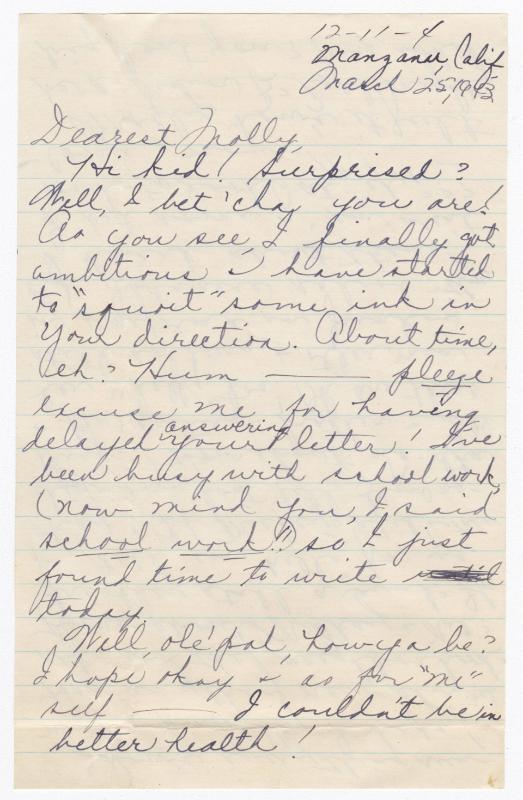 12-11-4
Manzanar, Calif
March 25, 1943
Dearest Molly,
Hi kid! Surprised?
Well, I bet'cha you are!
As you see, I finally got
ambitious & have started
to "squoit" some ink in
your direction. About time,
eh? Hum —— pleeze
excuse me for having
delayed answering your letter! I've
been busy with school work,
(now mind you, I said
school work!!) so I just
found time to write until
today.
Well, ole' pal, how ya be?
I hope okay & as for "me"
self —— I couldn't be in
better health!